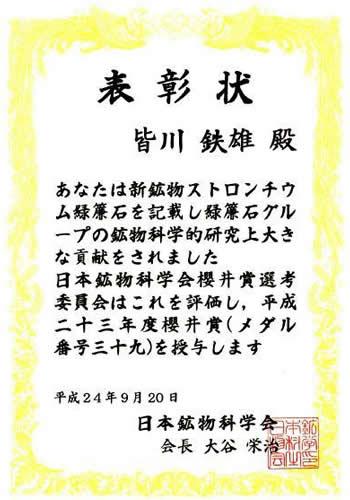 表彰状
皆川 鉄雄 殿
あなたは新鉱物ストロンチウ
ム緑簾石を記載し緑簾石グル
ープの鉱物科学的研究上大き
な貢献をされました
日本鉱物科学会櫻井賞選考
委員会はこれを評価し，平成
二十三年度櫻井賞(メダル
番号三十九)を授与します
平成24年9月20日
日本鉱物科学会
会長 大谷 栄治